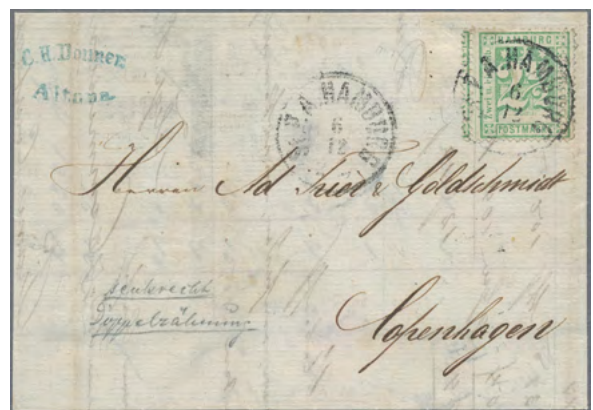 C. H. Donner
Altona
HAMBURG
POSTMARKE
St. P. A. HAMBURG
6
12
St. P. A. HAMBURG
6
12
Herren Ad Trier & Goldschmidt
senkrecht
Doppelzähnung
Copenhagen